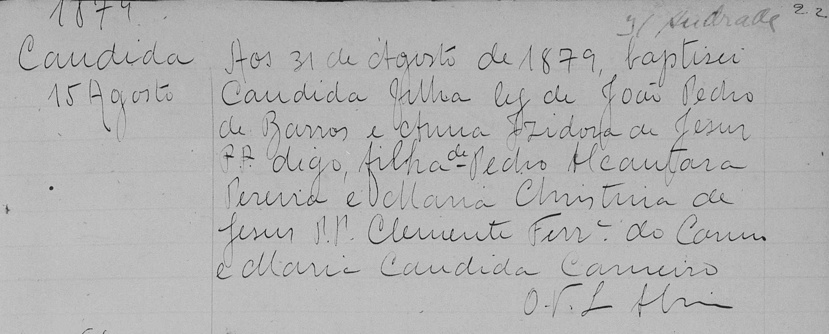 1879
22
Candida
15 Agosto
Aos 31 de Agosto de 1879, baptisei
Candida filha leg de João Pedro
de Barros e Anna Izidora de Jesus
P.P. digo, filha de Pedro Alcantara
Pereira e Maria Christina de
Jesus P.P. Clemente Ferrª do Carmo
e Maria Candida Carneiro
O. V. L